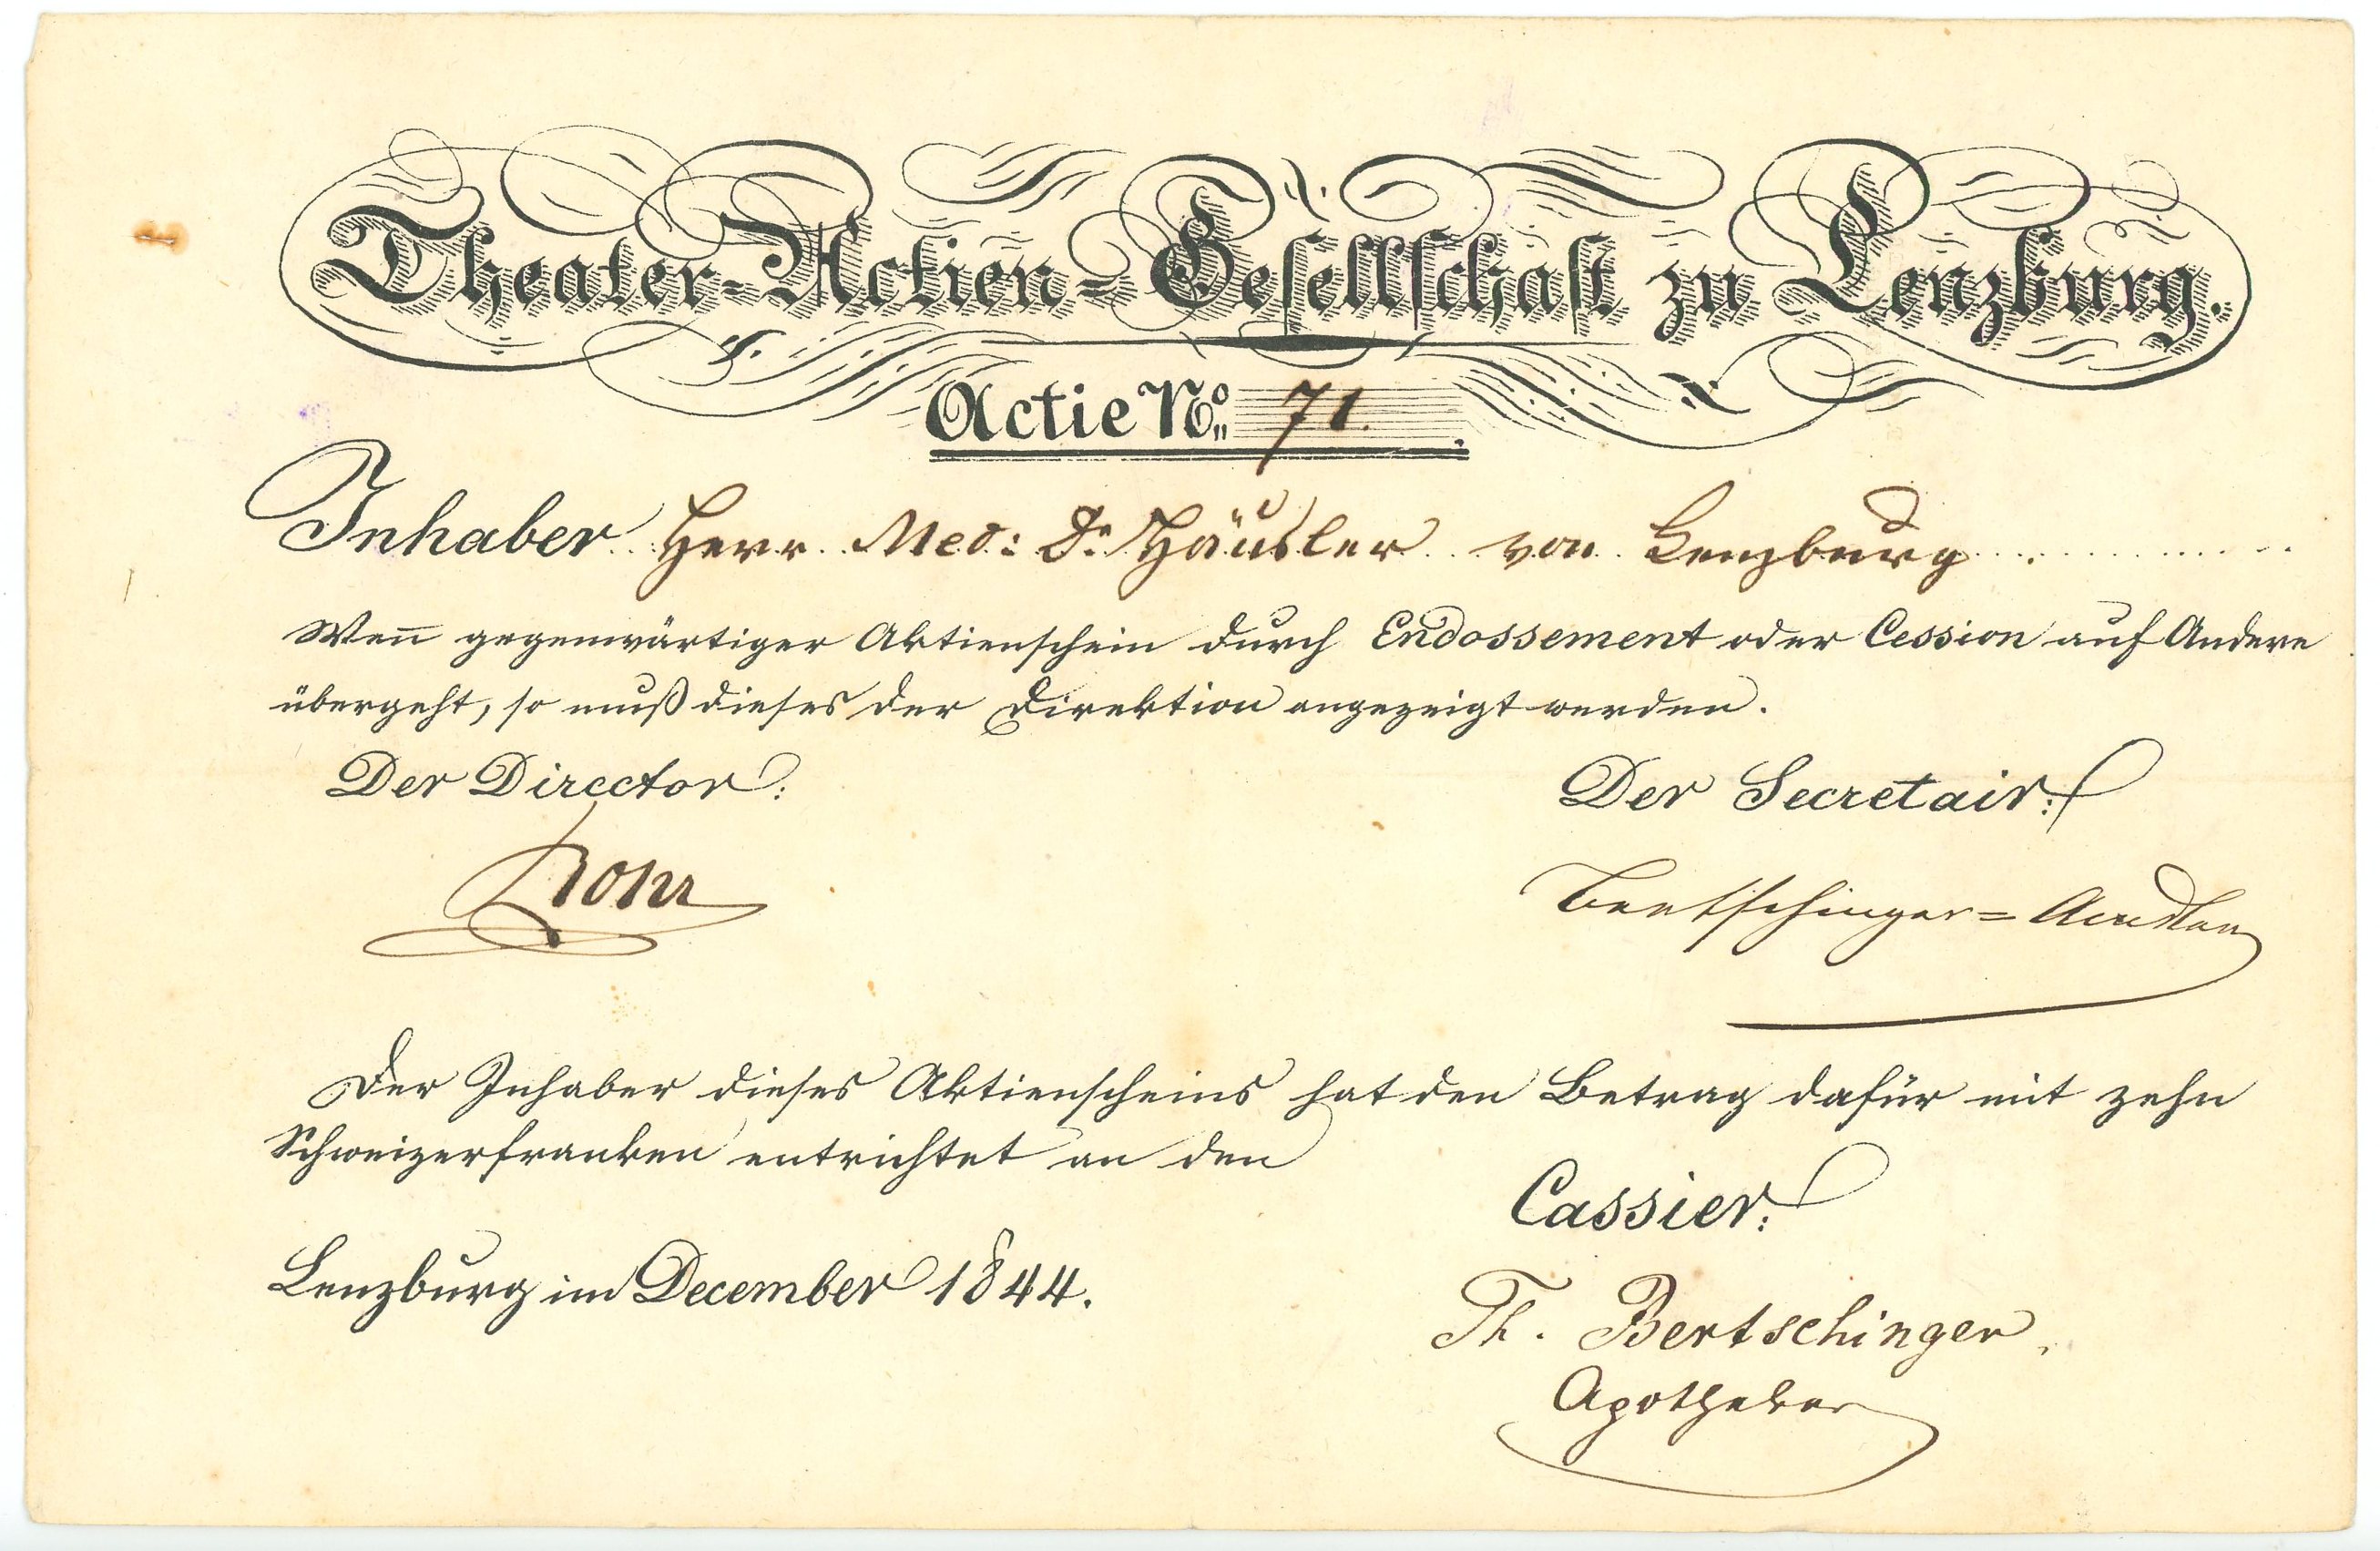 Theater-Actien-Gesellschaft zu Lenzburg.
Actie No. 71.
Inhaber Herr Med: Dr. Häusler von Lenzburg
Wen̄ gegenwärtiger Aktienschein durch Endossement oder Cession auf Andere
übergeht, so muß dieses der Direktion angezeigt werden.
Der Director:
Der Secretair:
Rohr
Bertschinger=
Der Inhaber dieses Aktienscheins hat den Betrag dafür mit zehn
Schweizerfranken entrichtet an den
Cassier:
Lenzburg im December 1844.
Th. Bertschinger,
Apotheker